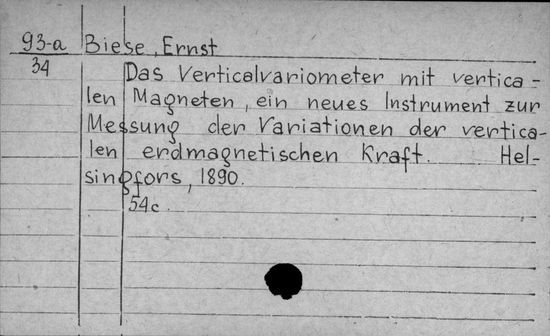 93-a Biese, Ernst
34 Das Verticalvariometer mit vertica-
len Magneten, ein neues Instrument zur
Messung der Variationen der vertica-
len erdmagnetischen Kraft. Hel-
singfors, 1890.
54c.